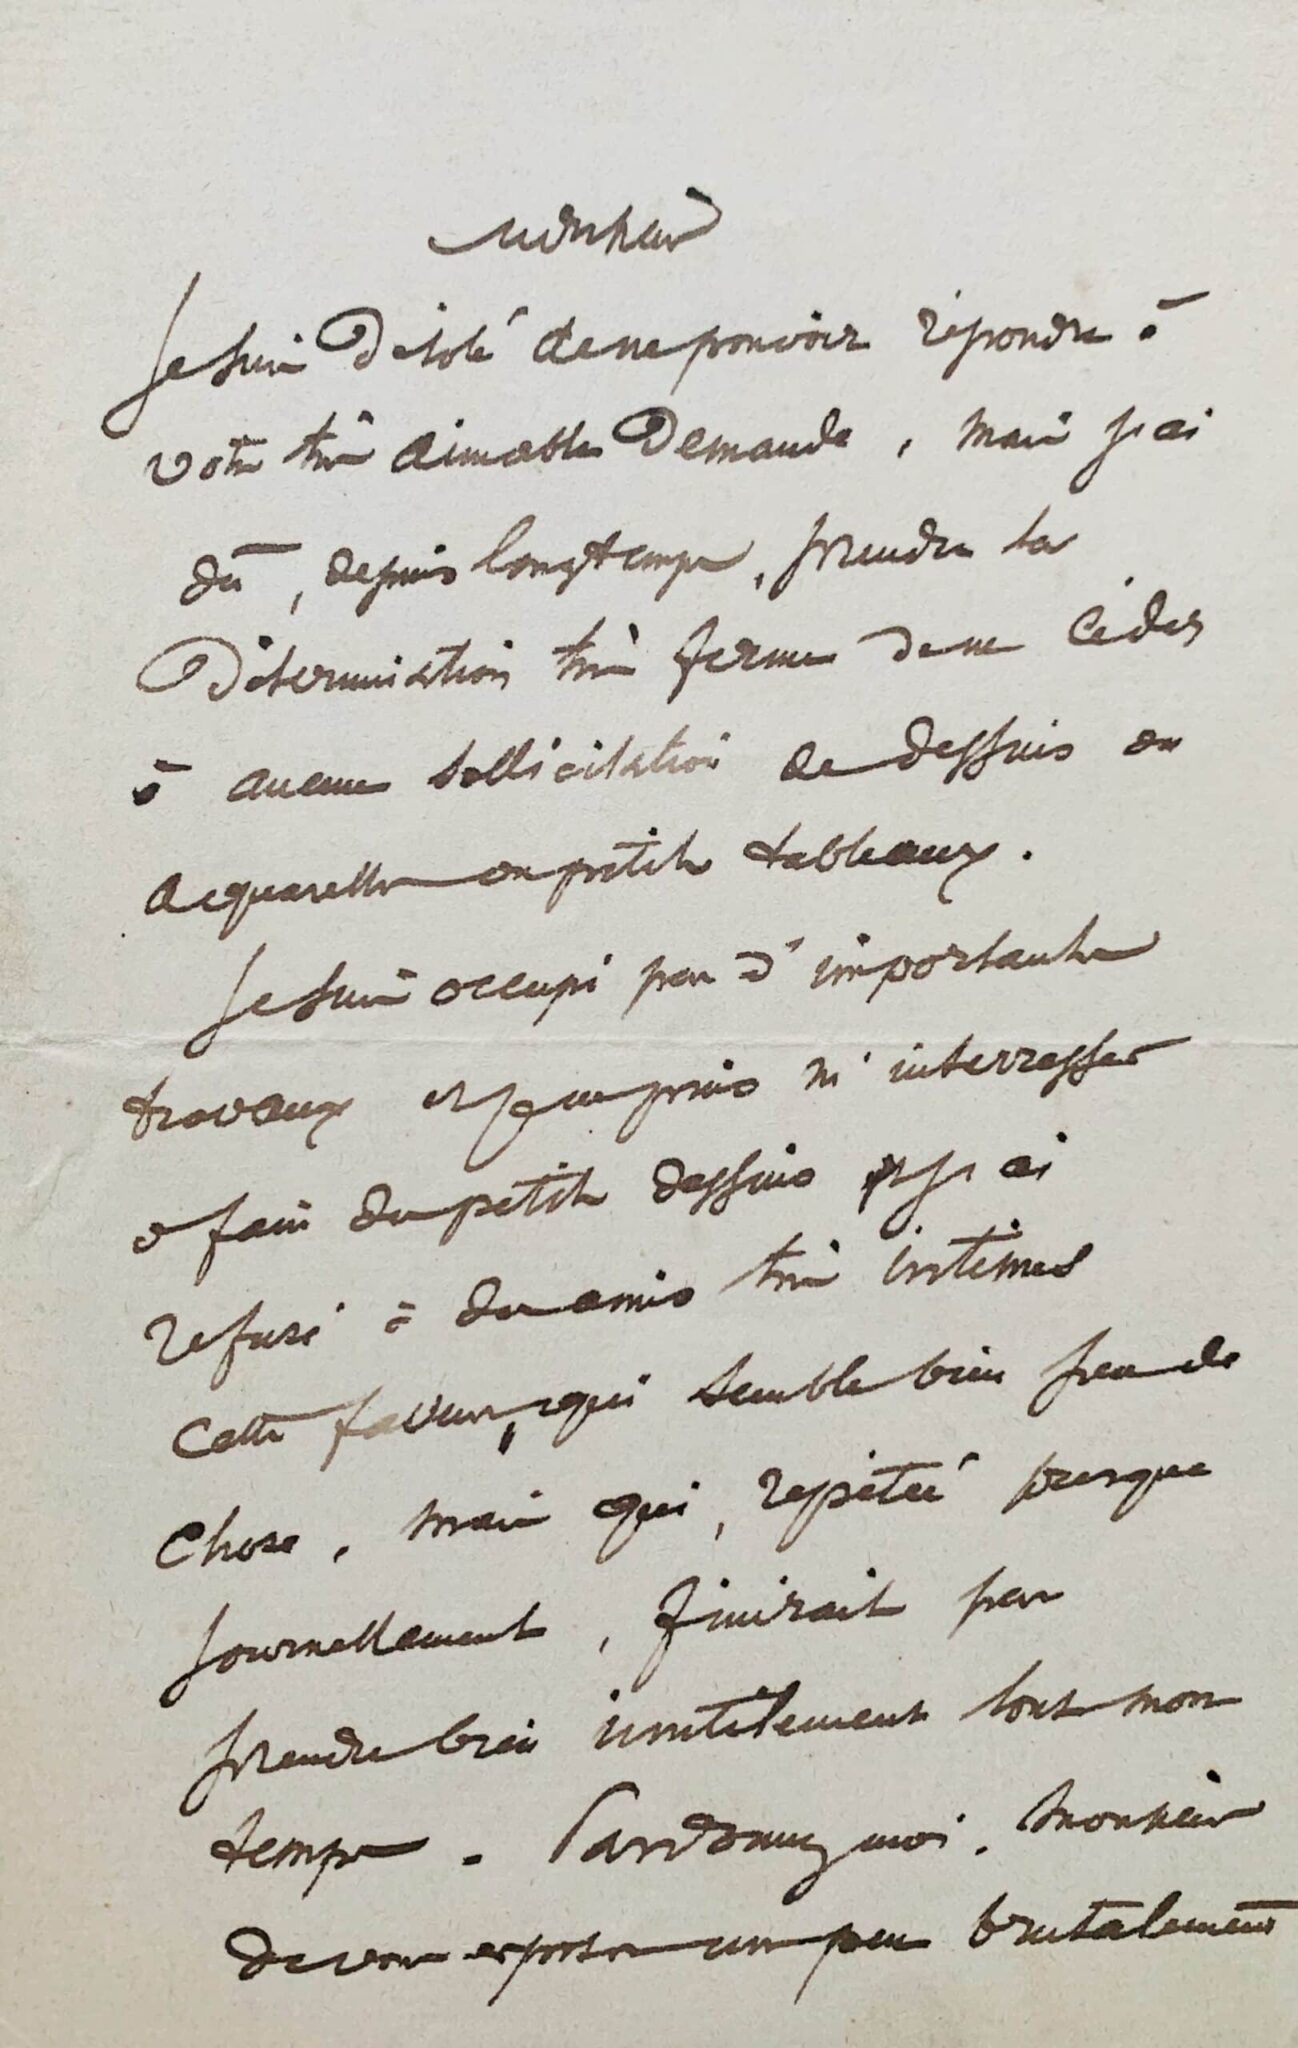 Monsieur
Je suis désolé de ne pouvoir répondre à
votre très aimable Demande, mais j'ai
dû, depuis longtemps, prendre la
Détermination très ferme de ne céder
à aucune sollicitation de dessins ou
acquarelles ou petits tableaux.
Je suis occupé par d'importants
travaux et je ne puis m'interresser
à faire des petits dessins et j'ai
refusé à des amis très intimes
cette faveur, qui semble bien peu de
chose, mais qui, repétée presque
journellement, finirait par
prendre bien inutilement tout mon
temps. Pardonnez moi, monsieur
de vous exposer un peu brutalement